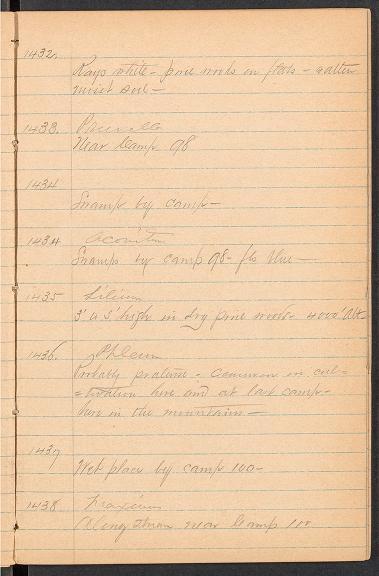 1432.
Rays white - pine woods on flats - rather
moist soil -
1433.
Near Camp 98
1434
Swamp by camp -
1434 Aconitum
Swamps by camp 98 - fls blue -
1435 Lilium
3' a 5' high in dry pine woods - 4000' Alt -
1436. Phleum
Probably pratense - common in cul-
=tivation here and at last camp -
here in the mountains -
1437
Wet place by camp 100 -
1438 Fraxinus
Along stream near Camp